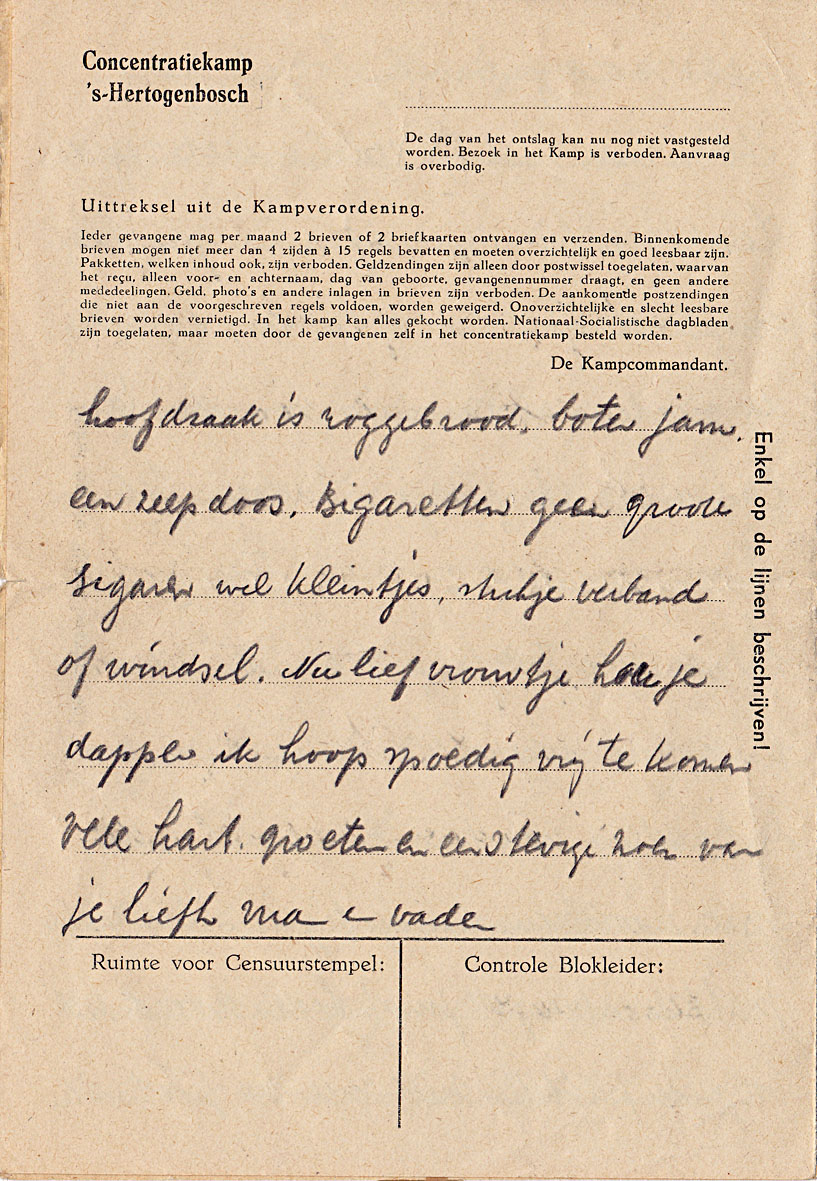 Concentratiekamp
's-Hertogenbosch
De dag van het ontslag kan nu nog niet vastgesteld
worden. Bezoek in het Kamp is verboden. Aanvraag
is overbodig.
Uittreksel uit de Kampverordening.
Ieder gevangene mag per maand 2 brieven of 2 briefkaarten ontvangen en verzenden. Binnenkomende
brieven mogen niet meer dan 4 zijden à 15 regels bevatten en moeten overzichtelijk en goed leesbaar zijn.
Pakketten, welken inhoud ook, zijn verboden. Geldzendingen zijn alleen door postwissel toegelaten, waarvan
het reçu, alleen voor- en achternaam, dag van geboorte, gevangenennummer draagt, en geen andere
mededeelingen. Geld, photo's en andere inlagen in brieven zijn verboden. De aankomende postzendingen
die niet aan de voorgeschreven regels voldoen, worden geweigerd. Onoverzichtelijke en slecht leesbare
brieven worden vernietigd. In het kamp kan alles gekocht worden. Nationaal-Socialistische dagbladen
zijn toegelaten, maar moeten door de gevangenen zelf in het concentratiekamp besteld worden.
De Kampcommandant.
hoofdzaak is roggebrood, boter jam,
een zeepdoos, sigaretten geen groote
sigaren wel kleintjes, stukje verband
of windsel. Nu lief vrouwtje hou je
dapper ik hoop spoedig vrij te komen
vele hart. groeten en een stevige zoen van
je liefh. man en vader
Enkel op de lijnen beschrijven!
Ruimte voor Censuurstempel:
Controle Blokleider: